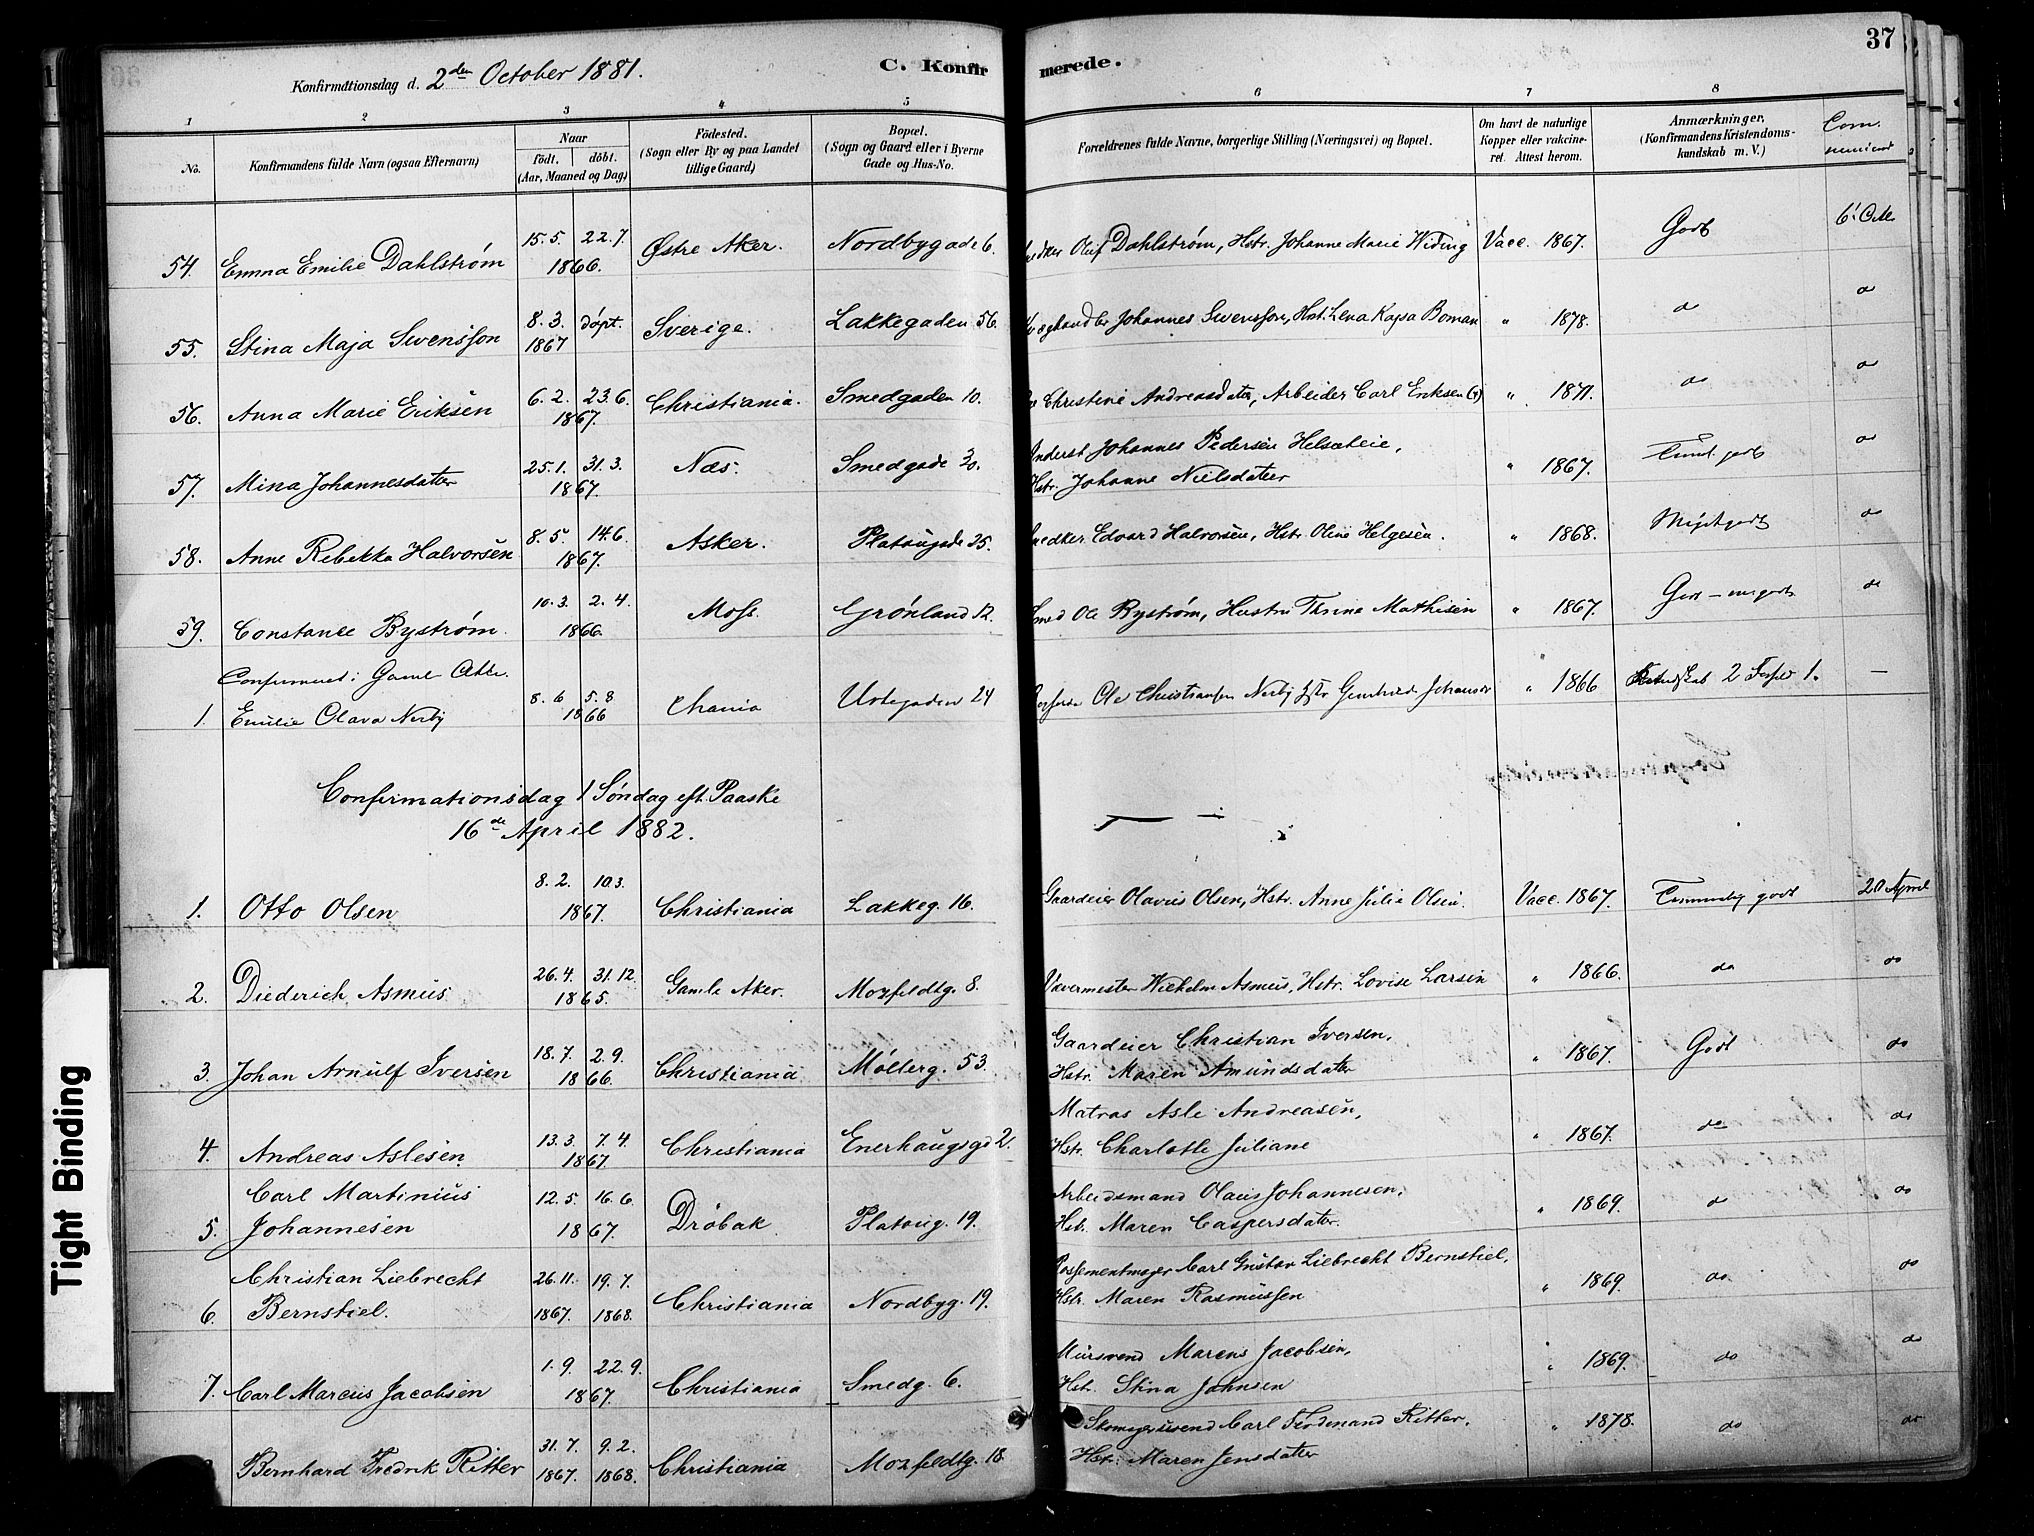 37
Konfirmationsdag d. 2den October 1881.
C. Konfirmerede.
1 2 3 4 5 6 7 8
No.
Konfirmandens fulde Navn (ogsaa Efternavn)
Naar
födt. döbt.
(Aar, Maaned og Dag)
Födested.
(Sogn eller By og paa Landet
tillige Gaard)
Bopæl.
(Sogn og Gaard eller i Byerne
Gade og Hus-No.
Forældrenes fulde Navne, borgerlige Stilling (Næringsvei) og Bopæl.
Om havt de naturlige
Kopper eller vakcine-
ret. Attest herom.
Anmærkninger.
(Konfirmandens Kristendoms-
kundskab m. V.)
54. Emma Emilie Dahlstrøm 15.5. 22.7. 1866. Østre Aker. Nordbygade 6. Oluf Dahlstrøm, Hstr. Johanne Marie Widing Vacc. 1867. Godt
55. Stina Maja Swensson 8.3. døpt. 1867 Sverige. Lakkegaden 56. Johannes Swensson, Hst. Lena Kajsa Boman " 1878. do do
56. Anna Marie Eriksen 6.2. 23.6. 1867. Christiania. Smedgaden 10. Christine Andreasdater, Arbeider Carl Eriksen " 1871. do do
57. Mina Johannesdatter 25.1. 31.3. 1867. Næs. Smedgade Johannes Pedersen
Hstr. Johanne Nielsdatter " 1867. godt do
58. Anne Rebekka Halvorsen 8.5. 14.6. 1867. Asker. Platougade 25. Edvard Halvorsen, Hstr. Oline Helgesen. " 1868. Megetgodt do
59. Constance Bystrøm. 10.3. 2.4. 1866. Moss. Grønland 12. Smed Ole Bystrøm, Hustru Thrine Mathisen " 1867. Godt - megodt do
Confirmeret i Gamle
1. Emilie Olava Nerby 8.6 5.8 1866 Chania 24 Ole Christiansen Nerby " 1866 2 1. —
Confirmationsdag 1 Søndag eft. Paaske
16de April 1882.
1. Otto Olsen 8.2. 10.3. 1867. Christiania Lakkeg. 16. Gaardeier Olavus Olsen, Hstr. Anne Julie Olsen. Vacc. 1867. godt 20 April
2. Diederich Asmus 26.4. 31.12. 1865. Gamle Aker. Mozfeldtg. 8. Vævermester Wilhelm Asmus, Hstr. Lovise Larsen " 1866. do do
3. Johan Arnulf Iversen 18.7. 2.9. 1866. Christiania Møllerg. 53. Gaardeier Christian Iversen,
Hstr. Maren Amundsdatter " 1867. Godt do
4. Andreas Aslesen 13.3. 7.4. 1867. Christiania Enerhaugsgd 2. Matros Asle Andreasen,
Hstr. Charlotte Juliane " 1867. do do
5. Carl Martinius
Johannesen 12.5. 16.6. 1867. Drøbak Platoug. 19. Arbeidsmand Olaus Johannesen,
Hstr. Maren Caspersdater. " 1869. do do
6. Christian Liebrecht
Bernstiel. 26.11. 1867. 19.7. 1868. Christiania Nordbyg. 19. Carl Gustav Liebrecht Bernstiel,
Hstr. Maren Rasmussen " 1869. do do
7. Carl Marcus Jacobsen 1.9. 22.9. 1867. Christiania Smedg. 6. Mursvend Marcus Jacobsen,
Hst. Stina Johnsen " 1869. do do
Bernhard Fredrik Ritter 31.7. 1867. 9.2. 1868. Christiania Mozfeldtg. 18 Skomagersvend Carl Ferdinand Ritter,
Hst. Maren Jensdatter " 1878. do do
Tight Binding